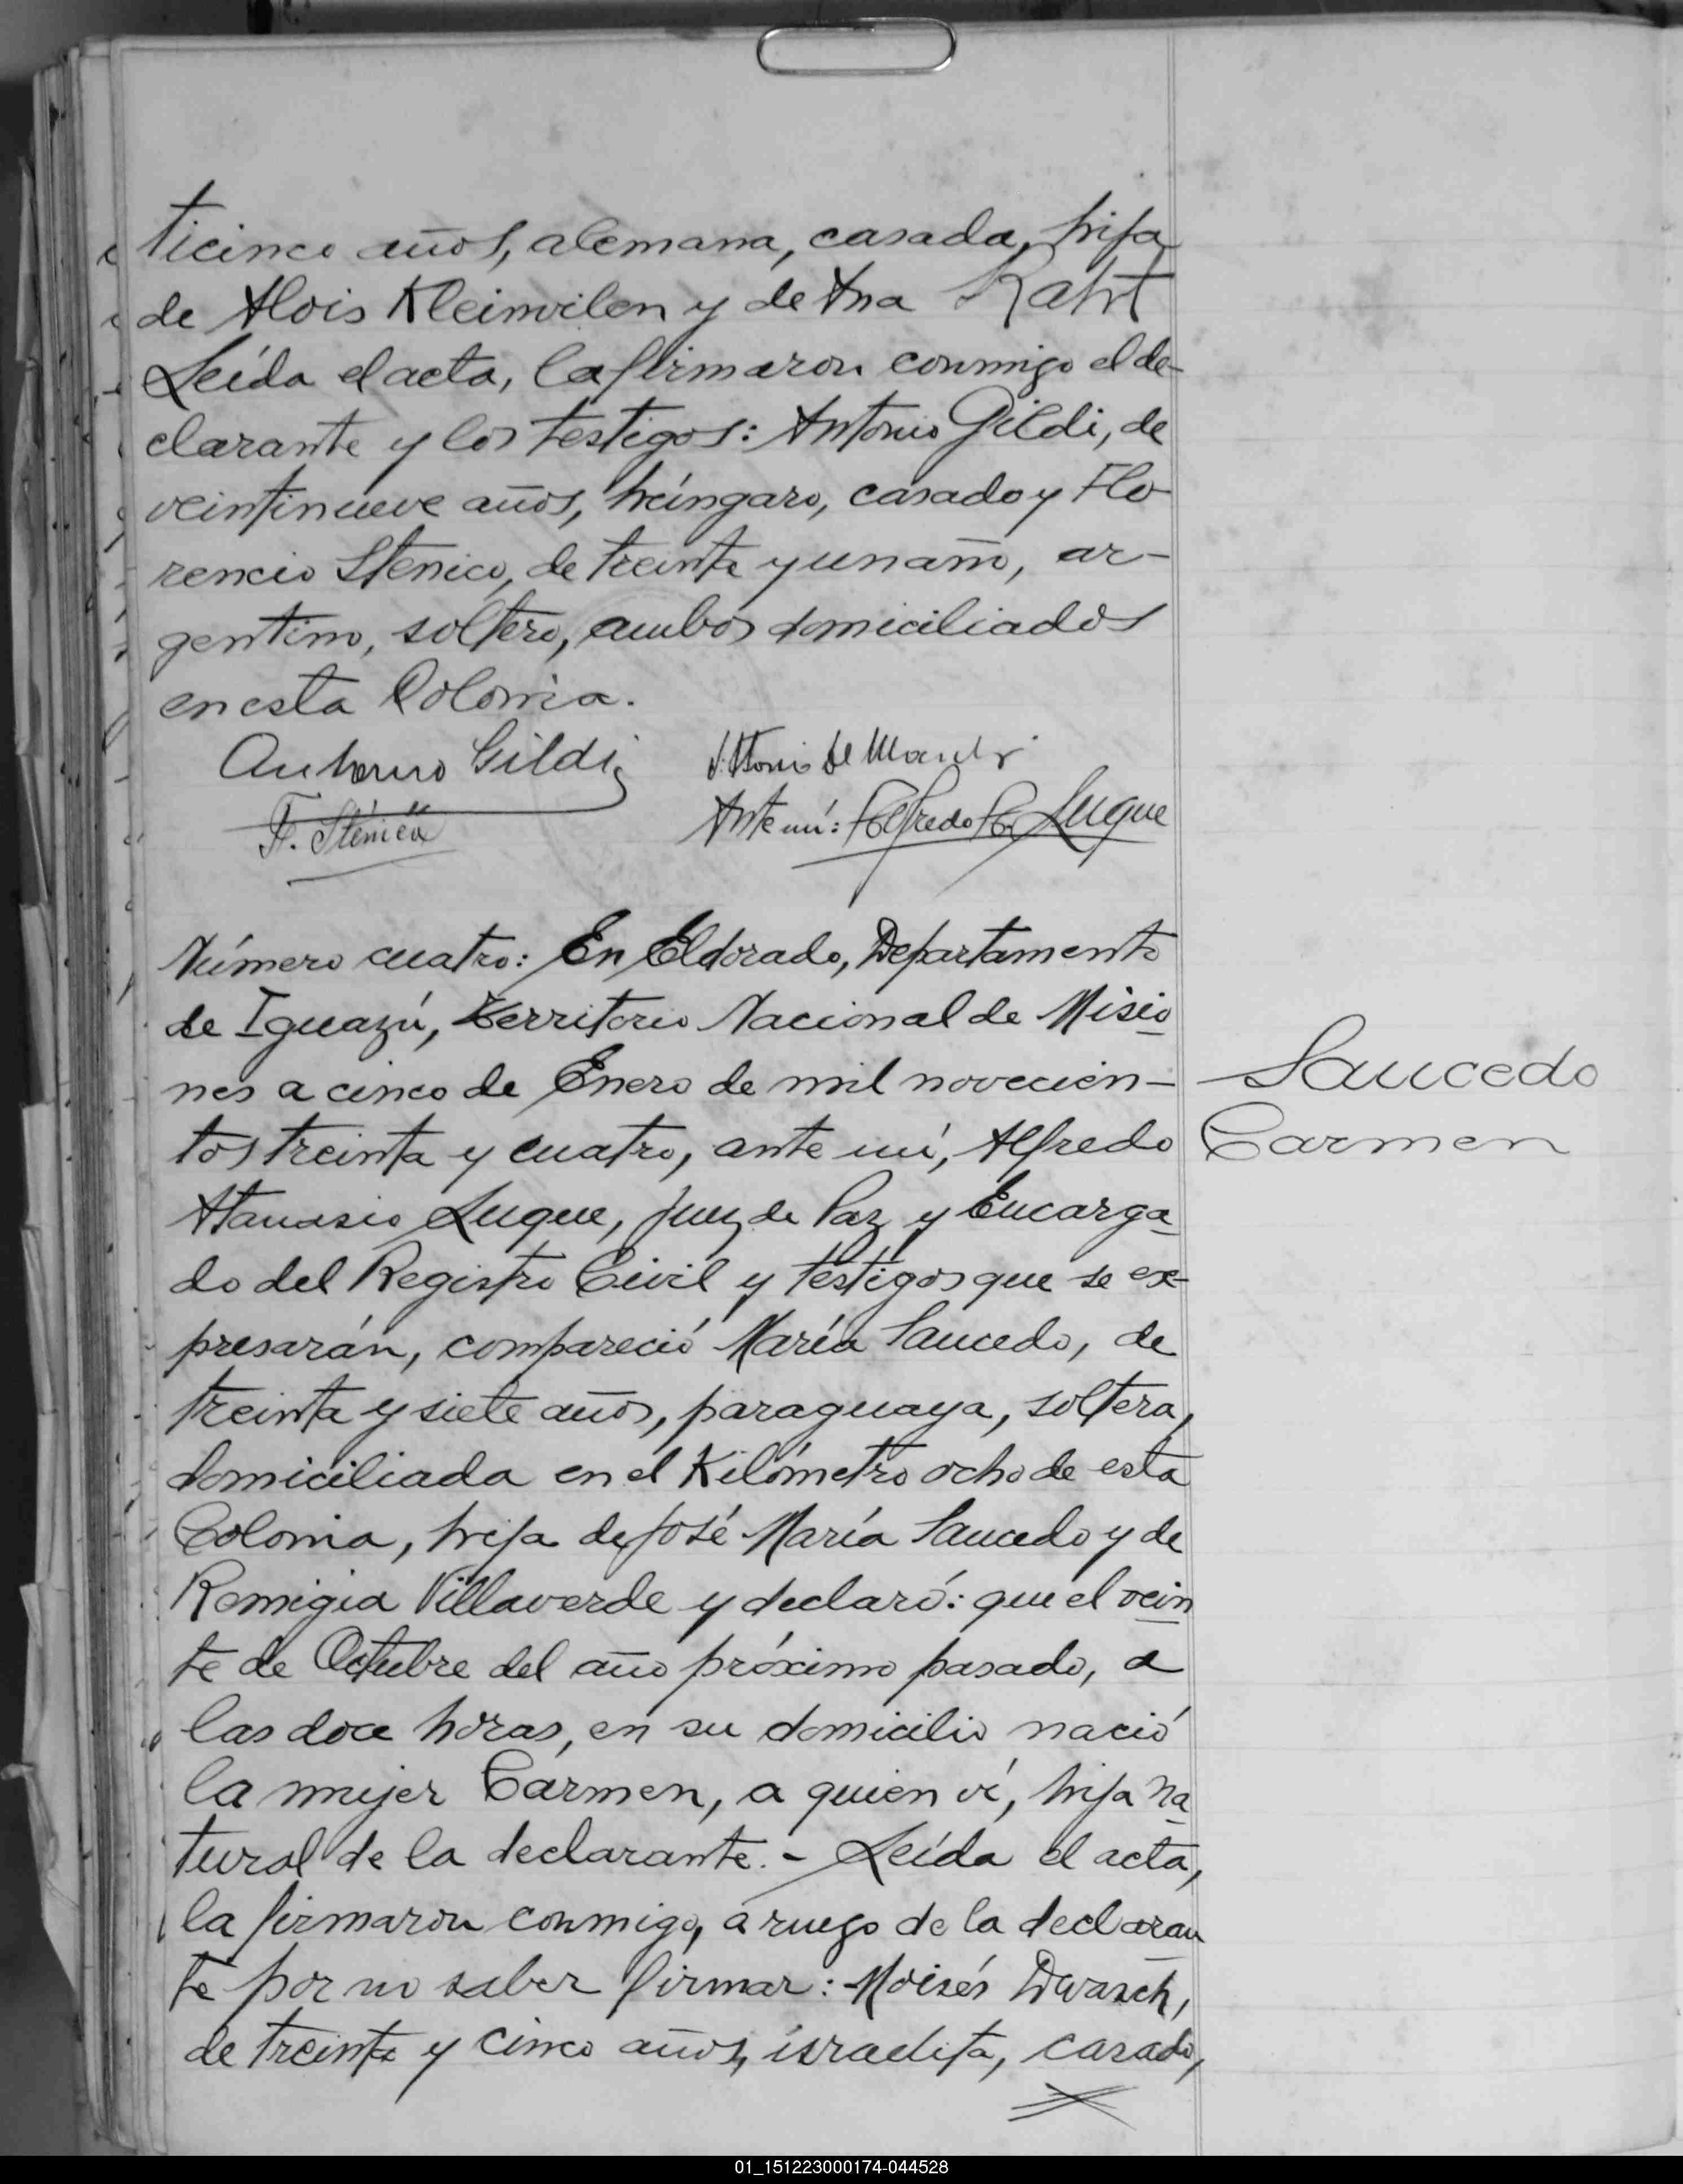 ticinco años, alemana, casada, hija
de Alois Kleinvilen y de Ana Raht
Leída el acta, la firmaron conmigo el de-
clarante y los testigos: Antonio Gildi, de
veintinueve años, húngaro, casado y Flo-
rencio Stenico, de treinta y un año, ar-
gentino, soltero, ambos domiciliados
en esta Colonia.
Antonio Gildi
F. Stenico
Ante mí: Alfredo A. Luque
Número cuatro: En Eldorado, Departamento
de Iguazú, Territorio Nacional de Misio
nes a cinco de Enero de mil novecien-
tos treinta y cuatro, ante mí, Alfredo
Atanasio Luque, Juez de Paz y Encarga
do del Registro Civil y testigos que se ex-
presarán, compareció María Saucedo, de
treinta y siete años, paraguaya, soltera,
domiciliada en el Kilómetro ocho de esta
Colonia, hija de José María Saucedo y de
Remigia Villaverde y declaró: que el vein
te de Octubre del año próximo pasado, a
las doce horas, en su domicilio nació
la mujer Carmen, a quien ví, hija na
tural de la declarante. - Leída el acta,
la firmaron conmigo, a ruego de la declaran
te por no saber firmar: Moisés Dwasch,
de treinta y cinco años, israelita, casado,
Saucedo
Carmen
01_151223000174-044528